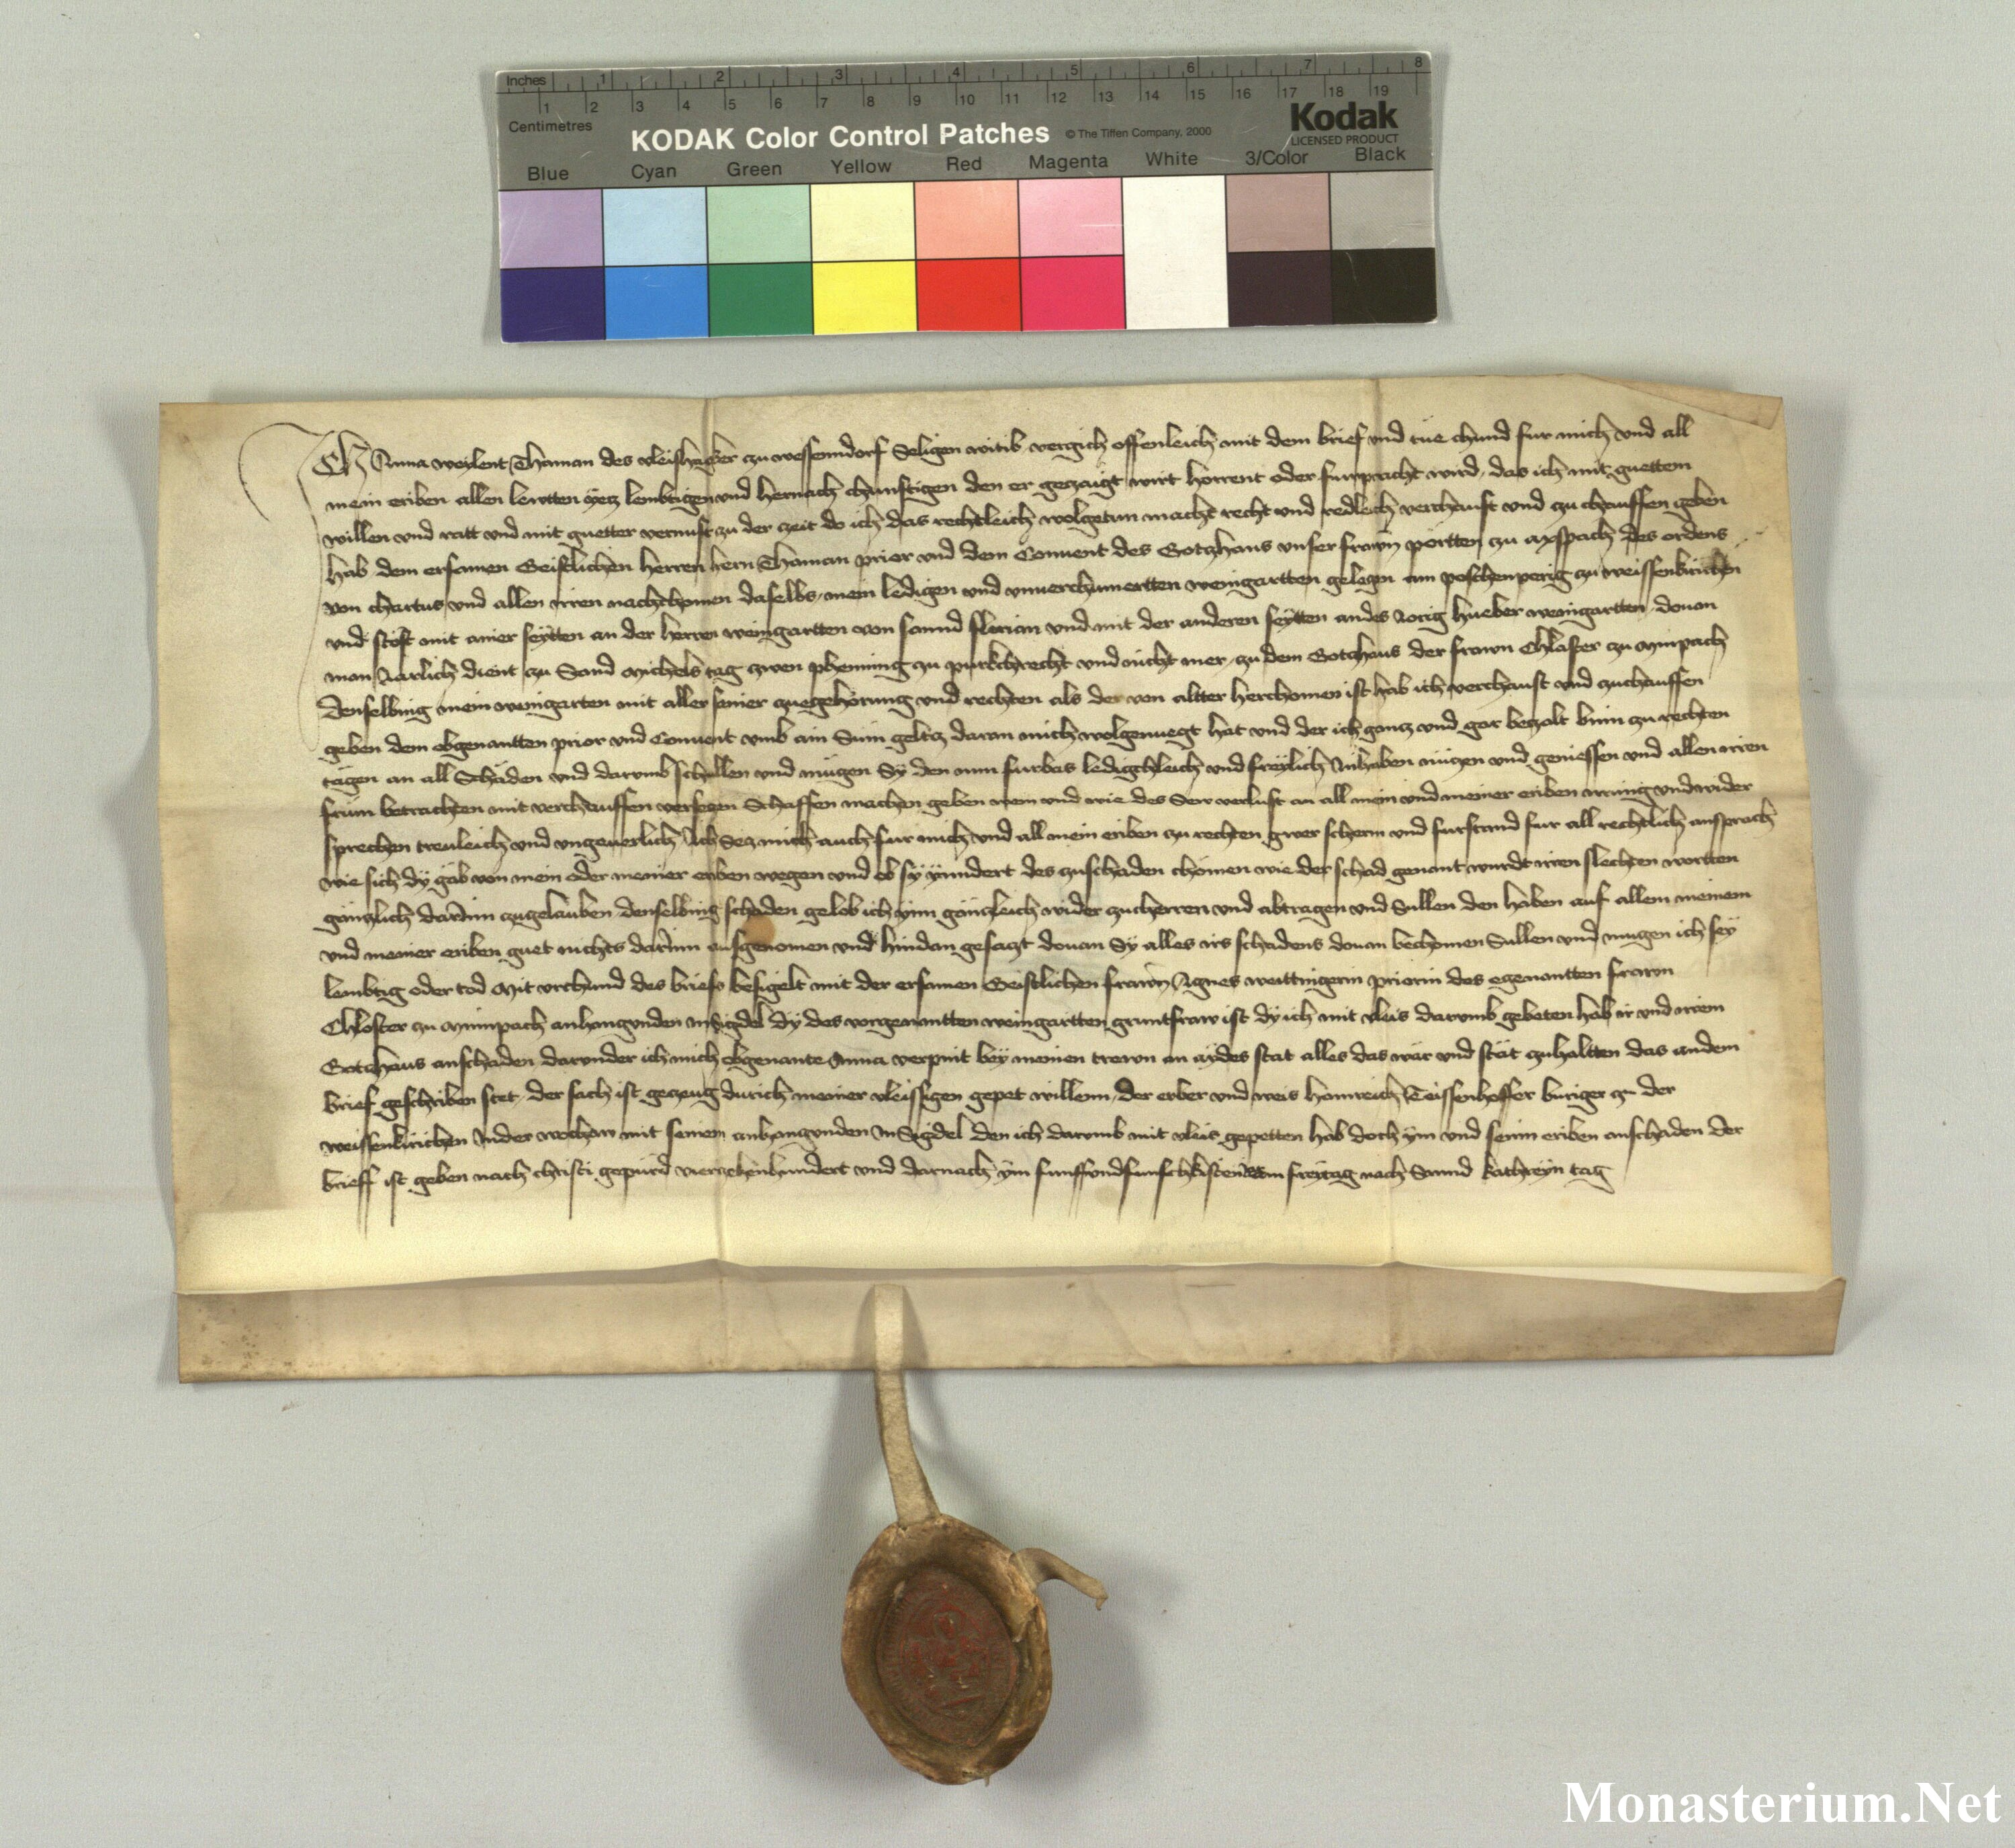 Inches 1 2 3 4 5 6 7 8
1 2 3 4 5 6 7 8 9 10 11 12 13 14 15 16 17 18 19
Centimetres
KODAK Color Control Patches © The Tiffen Company, 2000 Kodak
LICENSED PRODUCT
Blue Cyan Green Yellow Red Magenta White 3/Color Black
Ich Anna weylent Thaman des vleishaker zu wessenndorf Seligen witib vergich offenleich mit dem brief vnd tue chund fur mich vnd all
mein eriben allen lewtten yetz lembtigen vnd hernach chunftigen den er geczaigt wirt horrent oder furpracht wird, das ich mit guettem
willen vnd ratt vnd mit guetter vernuft zu der zeit do ich das rechtleich wolgetun macht recht vnd redleich verchauft vnd zu chauffen geben
hab dem ersamen Geistlichen herren hern Thaman prior vnd dem Conuent des Gotzhaus vnser frawn portten zu axspach des ordens
von chartus vnd allen irren nachchomen daselbs, mein ledigen vnd vnuerchumertten weingartten gelegen am poschenperig zu weissenkirichen
vnd stost mit ainer seytten an der herren weingartten von sannd florian vnd mit der anderen seytten an des Jorig hueber weingartten, douon
man Jarlich dient zu Sand Michels tag zwen phenning zu purkchrecht vnd nicht mer, zu dem Gotzhaus der frawn Chloster zu Minpach
denselbing mein weingarten mit aller seiner zuegehorung vnd rechten als der von altter herchomen ist hab ich verchauft vnd zuchauffen
geben dem obgenantten prior vnd Conuent vmb ain Sum geltz daran mich wolgenuegt hat vnd der ich gantz vnd gar beczalt bin zu rechten
tagen an all Schaden vnd darumb schullen vnd mugen Sy den nun furbas ledigchleich vnd freylich Inhaben nuczen vnd geniessen vnd allen irren
frum betrachten mit verchauffen verseczen Schaffen machen geben wem vnd wie des Sew verlust an all mein vnd meiner eriben irrung vnd wider
sprechen treuleich vnd vngeuerlich Ich Secz mich auch fur mich vnd all mein eriben zu rechten gwer scherm vnd furstand fur all rechtlich ansprach
wie sich dy gab von mein oder meiner eriben wegen vnd ob sy yundert des zuschaden chomen wie der schad genant wurdt irren slechten wortten
ganczlich darInn zugelauben denselbing schaden gelob ich yn ganczleich wider zucherren vnd abtragen vnd Sullen den haben auf allem meinem
vnd meiner eriben guet nichts darInn ausgenomen vnd hindan gesaczt douan Sy alles irs schadens douan bechomen Sullen vnd mugen ich sey
lembtig oder tod Mit vrchund des briefs besigelt mit der ersamen Geistlichen frawn Agnes weittingerin priorin des egenantten frawn
Chloster zu Minpach anhangunden Insigdel dy des vorgenantten weingartten gruntfraw ist dy ich mit vleis darumb gebeten hab ir vnd irrem
Gotzhaus anschaden darunder ich mich obgenante Anna verpint bey meinen trewn an aydes stat alles das war vnd stät zuhaltten das an dem
brief geschriben stet, der sach ist geczeug durich meiner vleissigen gepet willenn, der erber vnd weis hainreich Teissenhoffer buriger zu der
weissenkirichen In der wochaw mit seinem anhangunden InSigdel den ich darumb mit vleis gepetten hab doch ym vnd seinen eriben anschaden Der
brieff ist geben nach christi gepurd vierczehenhundert vnd darnach ym funffvndfunfchkisten am freytag nach Sannd kathreyn tag
Monasterium.Net